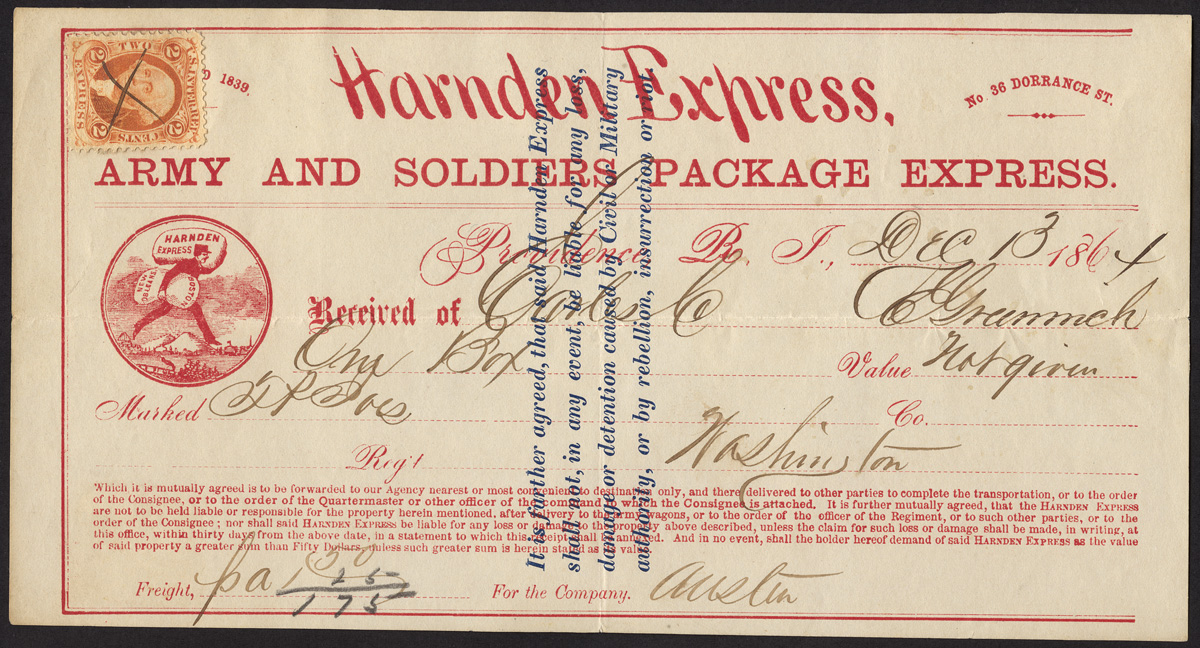 U.S. INTER. REV.
TWO
2 2
EXPRESS
2 CENTS 2
D 1839.
Harnden Express,
No. 36 DORRANCE ST.
ARMY AND SOLDIERS PACKAGE EXPRESS.
HARNDEN
EXPRESS
NEW ORLEANS
BOSTON
Providence, R. I., Dec 13 1864
Received of
One Box Value Not given
Marked Co.
Reg't Washington
Which it is mutually agreed is to be forwarded to our Agency nearest or most convenient to destination only, and there delivered to other parties to complete the transportation, or to the order
of the Consignee, or to the order of the Quartermaster or other officer of the command to which the Consignee is attached. It is further mutually agreed, that the HARNDEN EXPRESS
are not to be held liable or responsible for the property herein mentioned, after delivery to the army wagons, or to the order of the officer of the Regiment, or to such other parties, or to the
order of the Consignee; nor shall said HARNDEN EXPRESS be liable for any loss or damage to the property above described, unless the claim for such loss or damage shall be made, in writing, at
this office, within thirty days from the above date, in a statement to which this receipt shall be annexed. And in no event, shall the holder hereof demand of said HARNDEN EXPRESS as the value
of said property a greater sum than Fifty Dollars, unless such greater sum is herein stated as its value.
Freight, pd 150 For the Company. Austin
25
175
It is further agreed, that said Harnden Express
shall not, in any event, be liable for any loss,
damage or detention caused by Civil or Military
authority, or by rebellion, insurrection or riot.